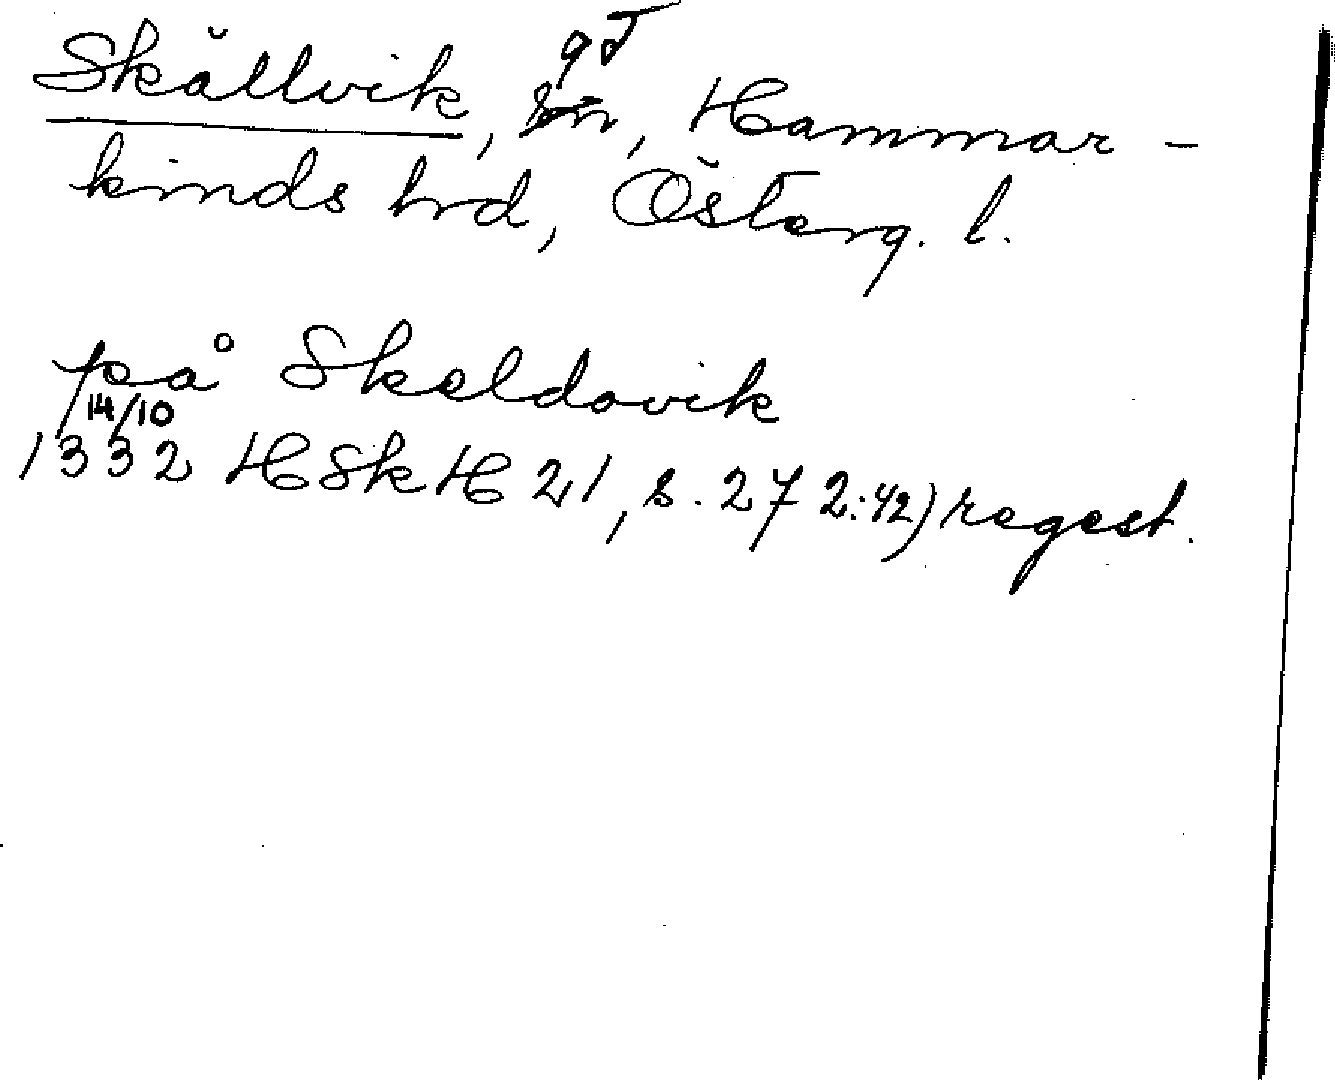 gd
Skällvik, sn, Hammar-
kinds hrd, Österg. l.
på Skeldovik
14/10
1332 HSkH 21, s. 272:42) regest.